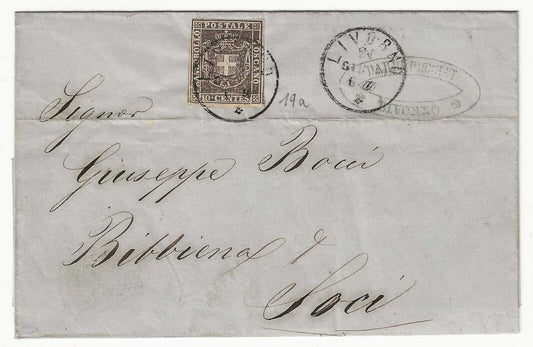 FRANCOBOLLO POSTALE TOSCANO
10 CENTES
LIVORNO
19a
LIVORNO
Signor
Giuseppe Bocci
Bibbiena &
Soci